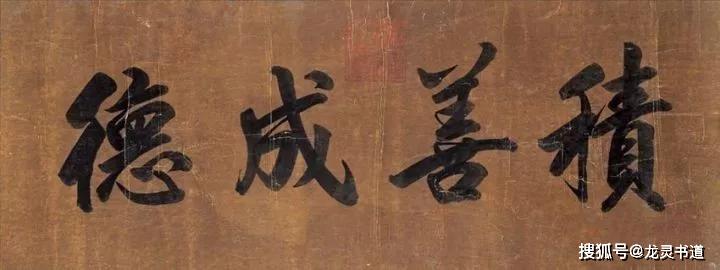 積善成德
搜狐号@龙灵书道